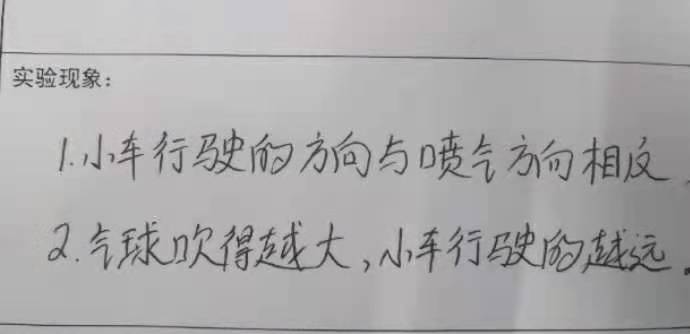 实验现象：
1.小车行驶的方向与喷气方向相反.
2.气球吹得越大,小车行驶的越远.